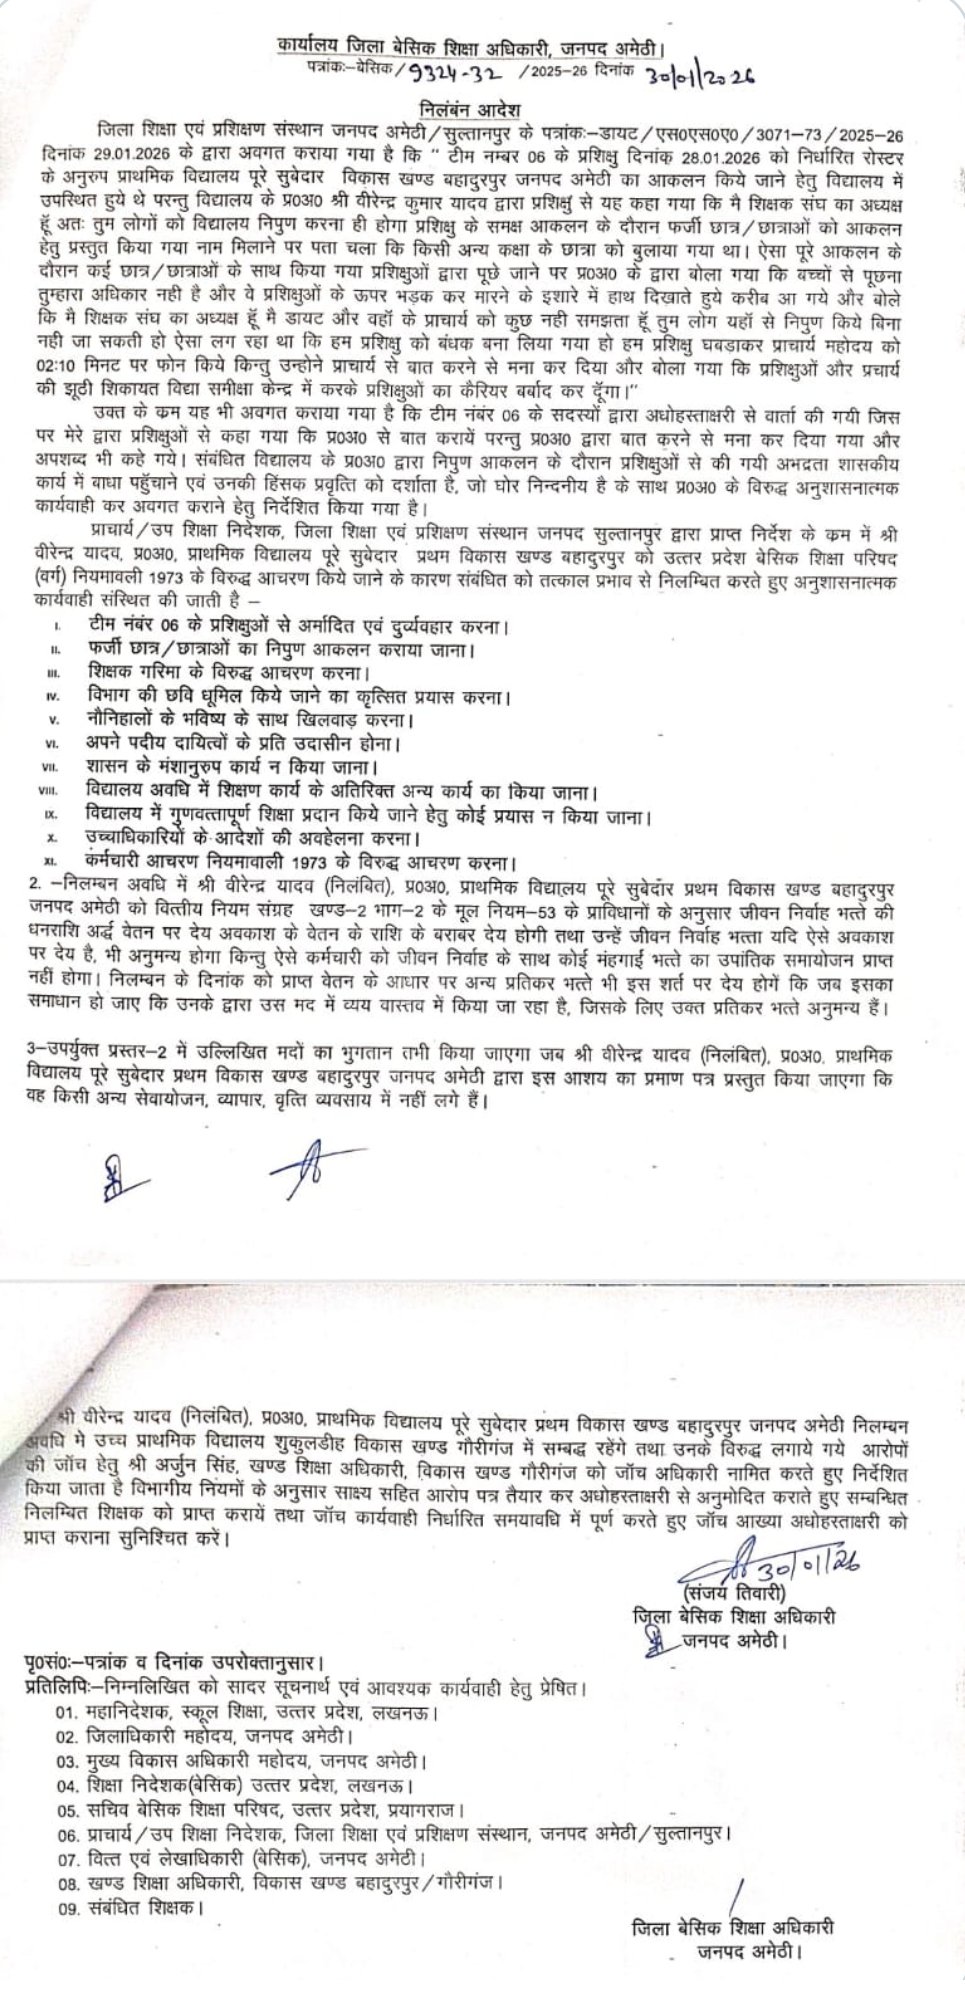 कार्यालय जिला बेसिक शिक्षा अधिकारी, जनपद अमेठी।
पत्रांकः–बेसिक/9324-32 /2025-26 दिनांक 30/01/2026
निलंबंन आदेश
जिला शिक्षा एवं प्रशिक्षण संस्थान जनपद अमेठी/सुल्तानपुर के पत्रांकः–डायट/एस0एस0ए0/3071–73/2025–26
दिनांक 29.01.2026 के द्वारा अवगत कराया गया है कि " टीम नम्बर 06 के प्रशिक्षु दिनांक 28.01.2026 को निर्धारित रोस्टर
के अनुरुप प्राथमिक विद्यालय पूरे सुबेदार विकास खण्ड बहादुरपुर जनपद अमेठी का आकलन किये जाने हेतु विद्यालय में
उपस्थित हुये थे परन्तु विद्यालय के प्र0अ0 श्री वीरेन्द्र कुमार यादव द्वारा प्रशिक्षुं से यह कहा गया कि मै शिक्षक संघ का अध्यक्ष
हूॅ अतः तुम लोगों को विद्यालय निपुण करना ही होगा प्रशिक्षु के समक्ष आकलन के दौरान फर्जी छात्र/छात्राओं को आकलन
हेतु प्रस्तुत किया गया नाम मिलाने पर पता चला कि किसी अन्य कक्षा के छात्रा को बुलाया गया था। ऐसा पूरे आकलन के
दौरान कई छात्र/छात्राओं के साथ किया गया प्रशिक्षुओं द्वारा पूछे जाने पर प्र0अ0 के द्वारा बोला गया कि बच्चों से पूछना
तुम्हारा अधिकार नही है और वे प्रशिक्षुओं के ऊपर भड़क कर मारने के इशारे में हाथ दिखाते हुये करीब आ गये और बोले
कि मै शिक्षक संघ का अध्यक्ष हूॅ मै डायट और वहॉ के प्राचार्य को कुछ नही समझता हूॅ तुम लोग यहॉ से निपुण किये बिना
नही जा सकती हो ऐसा लग रहा था कि हम प्रशिक्षु को बंधक बना लिया गया हो हम प्रशिक्षु घबडाकर प्राचार्य महोदय को
02:10 मिनट पर फोन किये किन्तु उन्होने प्राचार्य से बात करने से मना कर दिया और बोला गया कि प्रशिक्षुओं और प्रचार्य
की झूठी शिकायत विद्या समीक्षा केन्द्र में करके प्रशिक्षुओं का कैरियर बर्बाद कर दूॅगा।"
उक्त के कम यह भी अवगत कराया गया है कि टीम नंबंर 06 के सदस्यों द्वारा अधोहस्ताक्षरी से वार्ता की गयी जिस
पर मेरे द्वारा प्रशिक्षुओं से कहा गया कि प्र0अ0 से बात करायें परन्तु प्र0अ0 द्वारा बात करने से मना कर दिया गया और
अपशब्द भी कहे गये। संबंधित विद्यालय के प्र0अ0 द्वारा निपुण आकलन के दौरान प्रशिक्षुओं से की गयी अभद्रता शासकीय
कार्य में बाधा पहुॅचाने एवं उनकी हिंसक प्रवृत्ति को दर्शाता है, जो घोर निन्दनीय है के साथ प्र0अ0 के विरुद्ध अनुशासनात्मक
कार्यवाही कर अवगत कराने हेतु निर्देशित किया गया है।
प्राचार्य/उप शिक्षा निदेशक, जिला शिक्षा एवं प्रशिक्षण संस्थान जनपद सुल्तानपुर द्वारा प्राप्त निर्देश के कम में श्री
वीरेन्द्र यादव, प्र0अ0, प्राथमिक विद्यालय पूरे सुबेदार प्रथम विकास खण्ड बहादुरपुर को उत्तर प्रदेश बेसिक शिक्षा परिषद
(वर्ग) नियमावली 1973 के विरुद्ध आचरण किये जाने के कारण संबंधित को तत्काल प्रभाव से निलम्बित करते हुए अनुशासनात्मक
कार्यवाही संस्थित की जाती है –
I. टीम नंबंर 06 के प्रशिक्षुओं से अर्मादित एवं दुर्व्यवहार करना।
II. फर्जी छात्र/छात्राओं का निपुण आकलन कराया जाना।
III. शिक्षक गरिमा के विरुद्ध आचरण करना।
IV. विभाग की छवि धूमिल किये जाने का कृत्सित प्रयास करना।
V. नौनिहालों के भविष्य के साथ खिलवाड़ करना।
VI. अपने पदीय दायित्वों के प्रति उदासीन होना।
VII. शासन के मंशानुरुप कार्य न किया जाना।
VIII. विद्यालय अवधि में शिक्षण कार्य के अतिरिक्त अन्य कार्य का किया जाना।
IX. विद्यालय में गुणवत्तापूर्ण शिक्षा प्रदान किये जाने हेतु कोई प्रयास न किया जाना।
X. उच्चाधिकारियों के आदेशों की अवहेलना करना।
XI. कर्मचारी आचरण नियमावाली 1973 के विरुद्ध आचरण करना।
2. –निलम्बन अवधि में श्री वीरेन्द्र यादव (निलंबित), प्र0अ0, प्राथमिक विद्यालय पूरे सुबेदार प्रथम विकास खण्ड बहादुरपुर
जनपद अमेठी को वित्तीय नियम संग्रह खण्ड–2 भाग–2 के मूल नियम–53 के प्राविधानों के अनुसार जीवन निर्वाह भत्ते की
धनराशि अर्द्ध वेतन पर देय अवकाश के वेतन के राशि के बराबर देय होगी तथा उन्हें जीवन निर्वाह भत्ता यदि ऐसे अवकाश
पर देय है, भी अनुमन्य होगा किन्तु ऐसे कर्मचारी को जीवन निर्वाह के साथ कोई मंहगाई भत्ते का उपांतिक समायोजन प्राप्त
नहीं होगा। निलम्बन के दिनांक को प्राप्त वेतन के आधार पर अन्य प्रतिकर भत्ते भी इस शर्त पर देय होगें कि जब इसका
समाधान हो जाए कि उनके द्वारा उस मद में व्यय वास्तव में किया जा रहा है, जिसके लिए उक्त प्रतिकर भत्ते अनुमन्य हैं।
3–उपर्युक्त प्रस्तर–2 में उल्लिखित मदों का भुगतान तभी किया जाएगा जब श्री वीरेन्द्र यादव (निलंबित), प्र0अ0, प्राथमिक
विद्यालय पूरे सुबेदार प्रथम विकास खण्ड बहादुरपुर जनपद अमेठी द्वारा इस आशय का प्रमाण पत्र प्रस्तुत किया जाएगा कि
वह किसी अन्य सेवायोजन, व्यापार, वृत्ति व्यवसाय में नहीं लगे हैं।
श्री वीरेन्द्र यादव (निलंबित), प्र0अ0, प्राथमिक विद्यालय पूरे सुबेदार प्रथम विकास खण्ड बहादुरपुर जनपद अमेठी निलम्बन
अवधि मे उच्च प्राथमिक विद्यालय शुकुलडीह विकास खण्ड गौरीगंज में सम्बद्ध रहेंगे तथा उनके विरुद्ध लगाये गये आरोपों
की जॉच हेतु श्री अर्जुन सिंह, खण्ड शिक्षा अधिकारी, विकास खण्ड गौरीगंज को जॉच अधिकारी नामित करते हुए निर्देशित
किया जाता है विभागीय नियमों के अनुसार साक्ष्य सहित आरोप पत्र तैयार कर अधोहस्ताक्षरी से अनुमोदित कराते हुए सम्बन्धित
निलम्बित शिक्षक को प्राप्त करायें तथा जॉच कार्यवाही निर्धारित समयावधि में पूर्ण करते हुए जॉच आख्या अधोहस्ताक्षरी को
प्राप्त कराना सुनिश्चित करें।
30/01/26
(संजय तिवारी)
जिला बेसिक शिक्षा अधिकारी
जनपद अमेठी।
पृ0सं0ः–पत्रांक व दिनांक उपरोक्तानुसार।
प्रतिलिपिः–निम्नलिखित को सादर सूचनार्थ एवं आवश्यक कार्यवाही हेतु प्रेषित।
01. महानिदेशक, स्कूल शिक्षा, उत्तर प्रदेश, लखनऊ।
02. जिलाधिकारी महोदय, जनपद अमेठी।
03. मुख्य विकास अधिकारी महोदय, जनपद अमेठी।
04. शिक्षा निदेशक(बेसिक) उत्तर प्रदेश, लखनऊ।
05. सचिव बेसिक शिक्षा परिषद, उत्तर प्रदेश, प्रयागराज।
06. प्राचार्य/उप शिक्षा निदेशक, जिला शिक्षा एवं प्रशिक्षण संस्थान, जनपद अमेठी/सुल्तानपुर।
07. वित्त एवं लेखाधिकारी (बेसिक), जनपद अमेठी।
08. खण्ड शिक्षा अधिकारी, विकास खण्ड बहादुरपुर/गौरीगंज।
09. संबंधित शिक्षक।
जिला बेसिक शिक्षा अधिकारी
जनपद अमेठी।